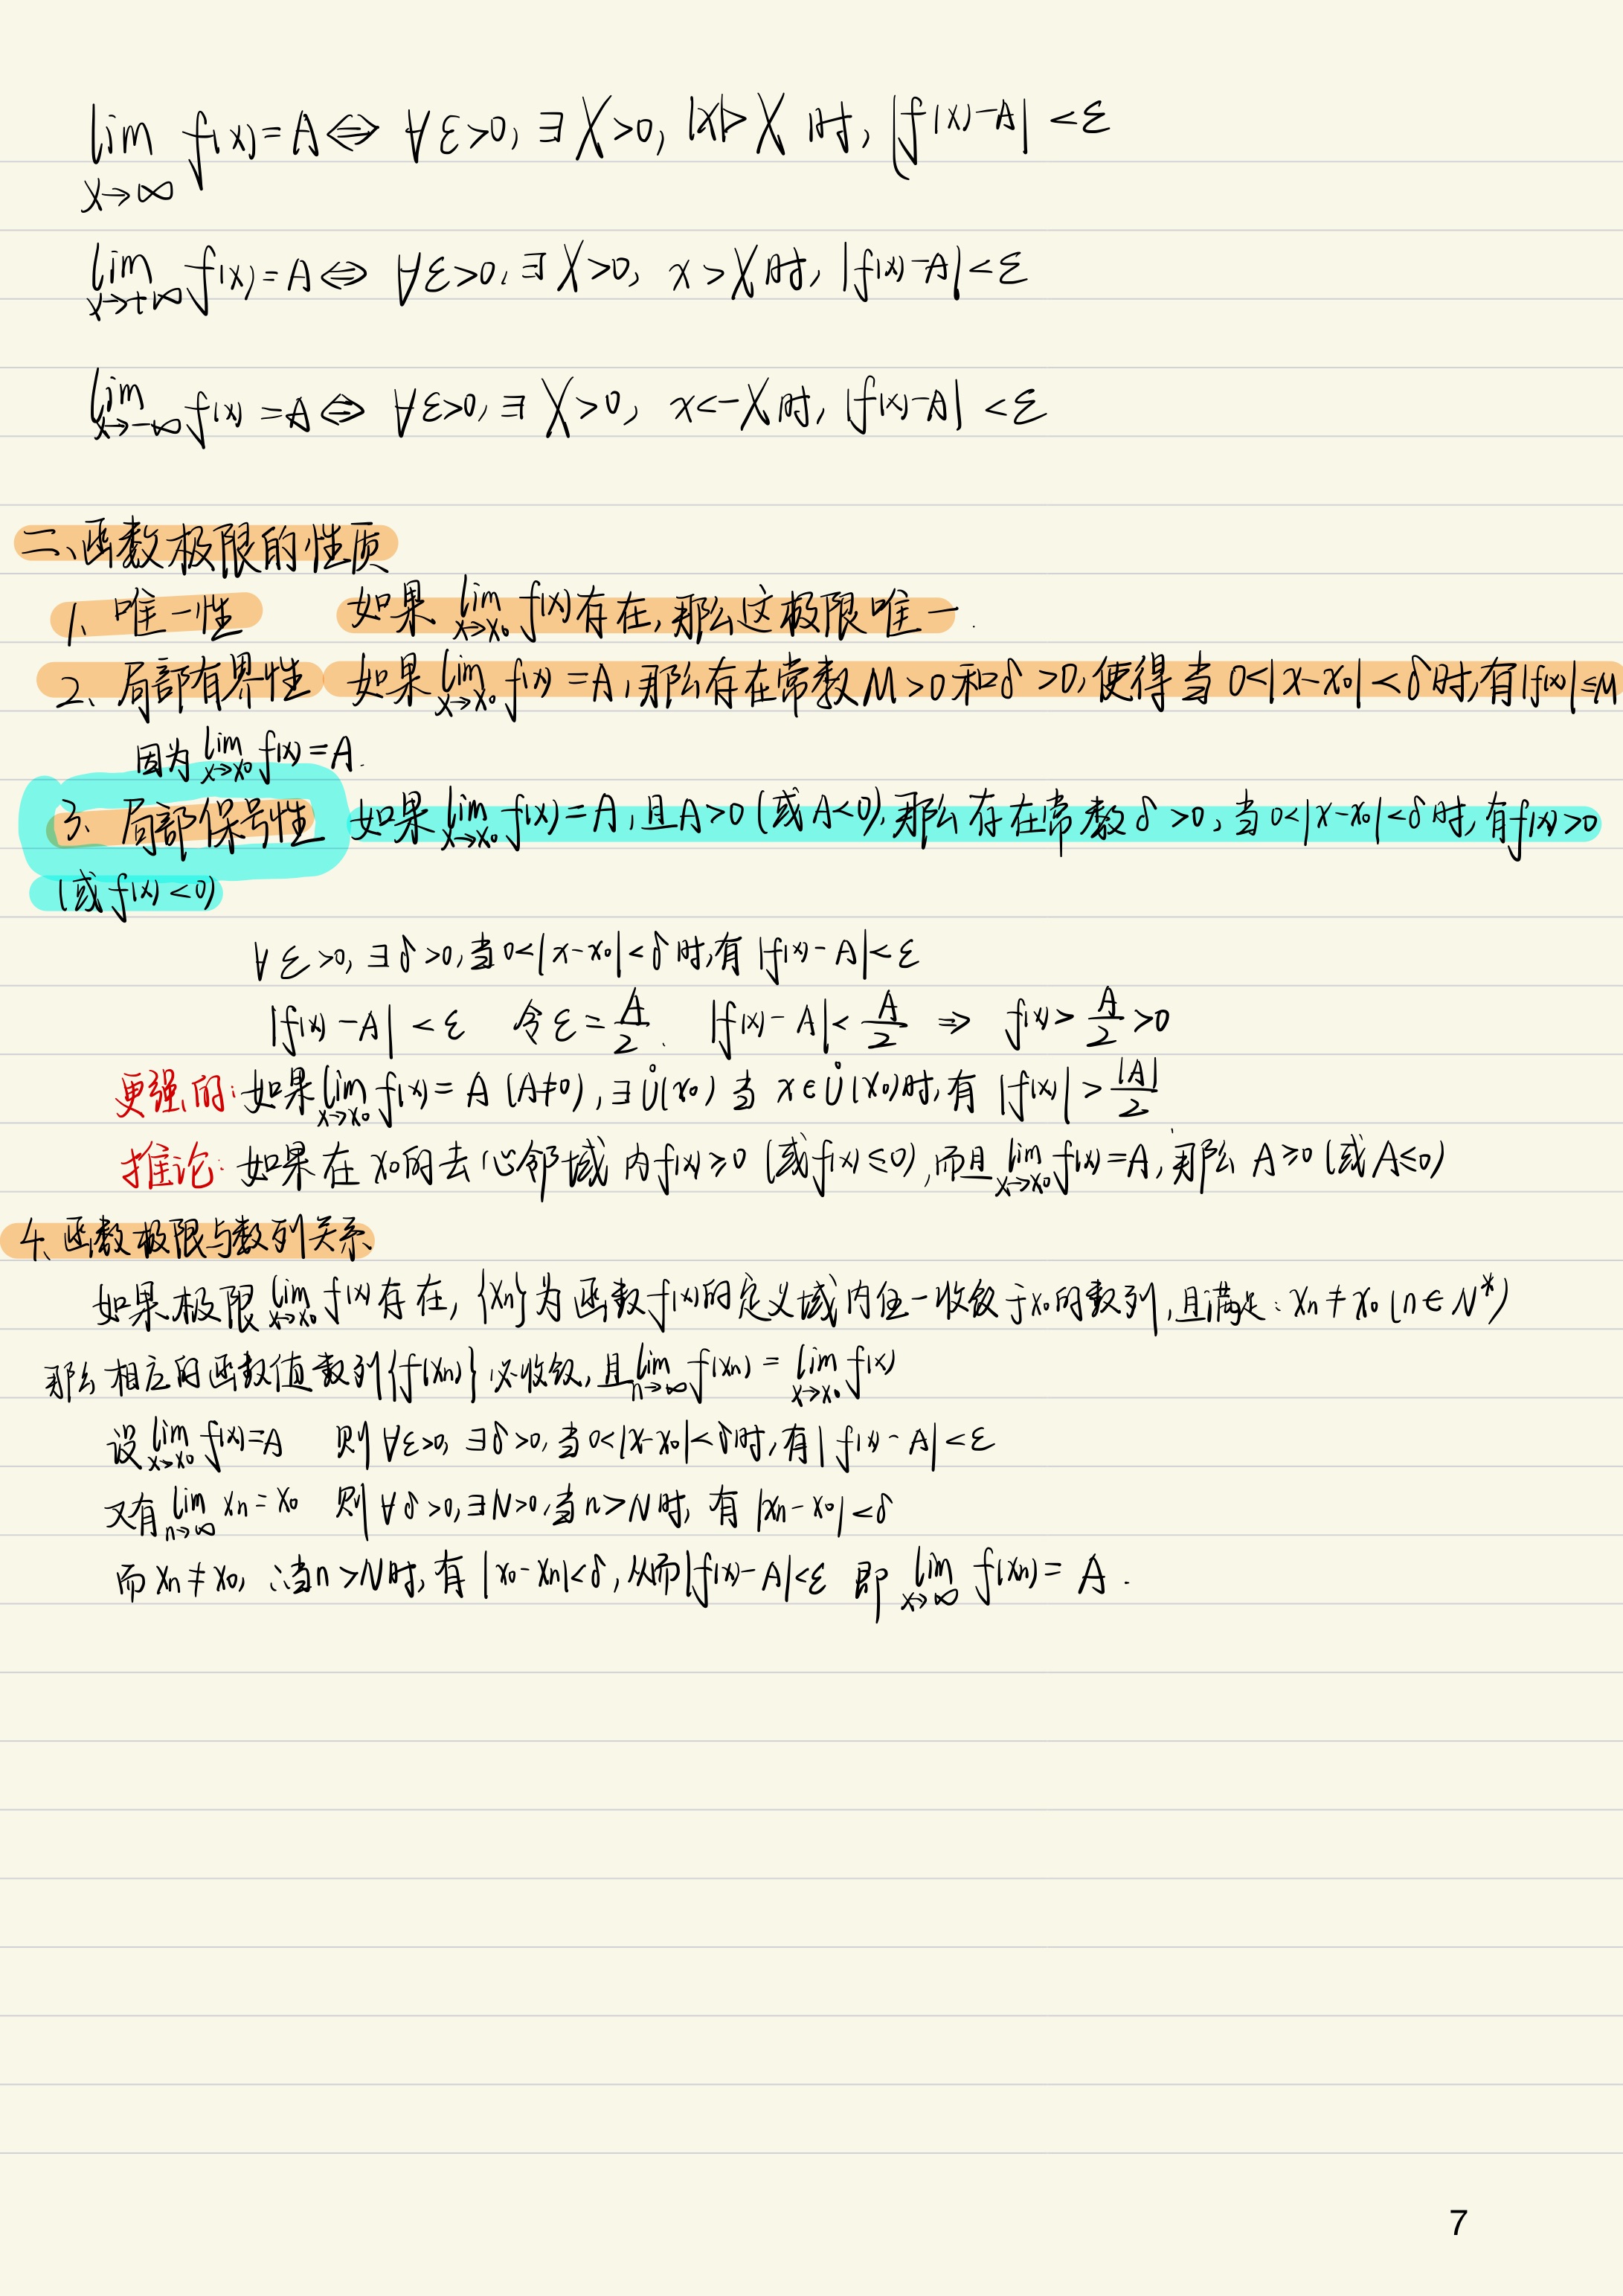 lim f(x)=A⇔ ∀ε>0,∃X>0, |x|>X 时, |f(x)-A|<ε
x→∞
lim f(x)=A⇔ ∀ε>0,∃X>0, x>X时, |f(x)-A|<ε
x→+∞
lim f(x)=A⇔ ∀ε>0,∃X>0, x<-X时, |f(x)-A|<ε
x→-∞
二、函数极限的性质
1、唯一性 如果 lim x→x₀ f(x)存在,那么这极限唯一.
2、局部有界性 如果 lim x→x₀ f(x)=A,那么存在常数M>0和δ>0,使得当0<|x-x₀|<δ时,有|f(x)|≤M
因为 lim x→x₀ f(x)=A.
3、局部保号性 如果 lim x→x₀ f(x)=A,且A>0(或A<0),那么存在常数δ>0,当0<|x-x₀|<δ时,有f(x)>0
(或f(x)<0)
∀ε>0,∃δ>0,当0<|x-x₀|<δ时,有|f(x)-A|<ε
|f(x)-A|<ε 令ε=A/2. |f(x)-A|<A/2 ⇒ f(x)>A/2>0
更强的:如果 lim x→x₀ f(x)=A(A≠0),∃Ů(x₀)当x∈Ů(x₀)时,有|f(x)|>|A|/2
推论:如果在x₀的去心邻域内f(x)≥0(或f(x)≤0),而且 lim x→x₀ f(x)=A,那么A≥0(或A≤0)
4、函数极限与数列关系
如果极限 lim x→x₀ f(x)存在,{xn}为函数f(x)的定义域内任一收敛于x₀的数列,且满足:xn≠x₀(n∈N*)
那么相应的函数值数列{f(xn)}必收敛,且 lim n→∞ f(xn)= lim x→x₀ f(x)
设 lim x→x₀ f(x)=A 则∀ε>0,∃δ>0,当0<|x-x₀|<δ时,有|f(x)-A|<ε
又有 lim n→∞ xn=x₀ 则∀δ>0,∃N>0,当n>N时,有|xn-x₀|<δ
而xn≠x₀,∴当n>N时,有|x₀-xn|<δ,从而|f(x)-A|<ε 即 lim x→∞ f(xn)=A.
7